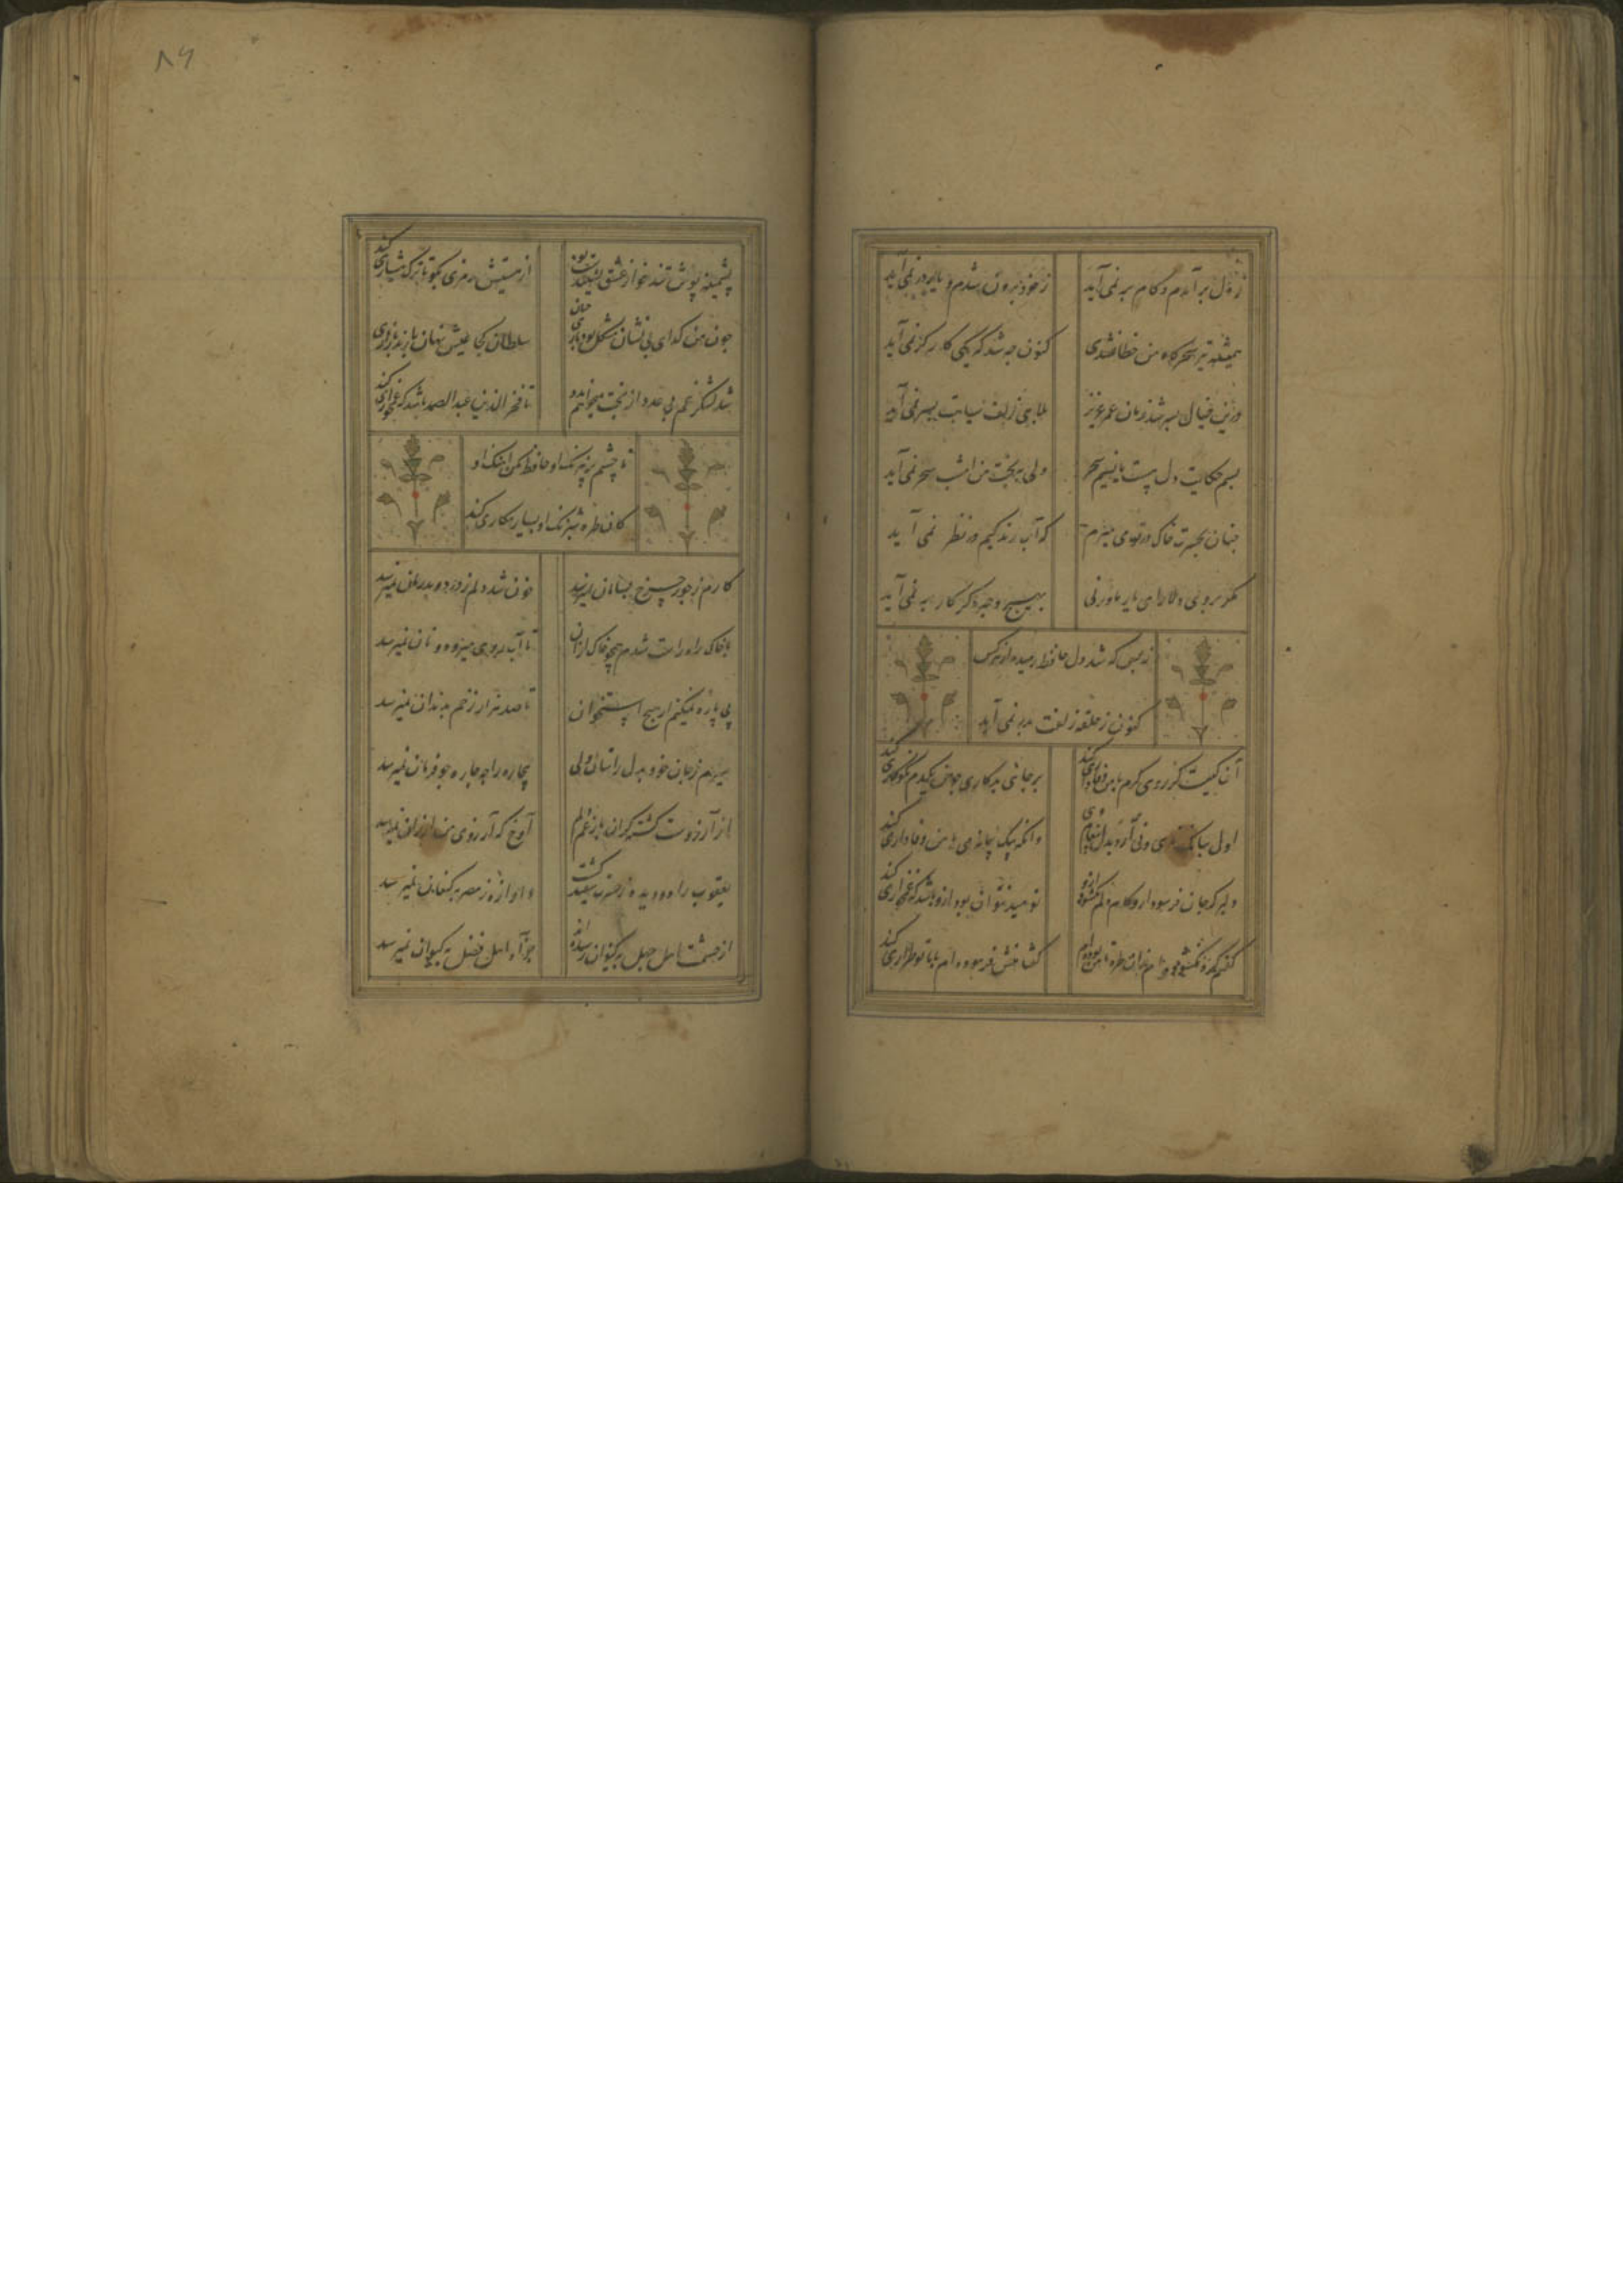 ز دل بر آمدم و کام بر نمی آید ز خود برون شدم و یار در نمی آید
همیشه تیر سحرگاه من خطا نشدی کنون چه شد که یکی کارگر نمی آید
درین خیال بسر شد زمان عمر عزیز بلای زلف سیاهت بسر نمی آید
بسم حکایت دل هست با نسیم سحر ولی به بخت من امشب سحر نمی آید
چنان بحسرت خاک در تو می میرم که آب زندگیم در نظر نمی آید
مگر بروی دلارای یار ما ورنی بهیچ وجه دگر کار بر نمی آید
ز بس که شد دل حافظ رمیده از همه کس
کنون ز حلقه زلفت بدر نمی آید
آن کیست کز روی کرم با من وفاداری کند بر جای بدکاری چو من یکدم نکوکاری کند
اول ببانک نای و نی آرد بدل پیغام وی وانگه بیک پیمانه می با من وفاداری کند
دلبر که جان فرسود ازو کام دلم نگشود ازو نومید نتوان بود ازو باشد که غمخواری کند
گفتم گره نگشوده ام زان طره تا من بوده ام گفتا منش فرموده ام با تو طراری کند
۸۶
پشمینه پوش تند خو از عشق نشنیدست بو از مستیش رمزی بگو تا ترک هشیاری کند
چون من کدای بی نشان مشکل بود یاری چنان سلطان کجا عیش نهان با رند بازاری
شد لشکر غم بی عدد از بخت میخواهم مدد تا فخر الدین عبد الصمد باشد که غمخواری کند
با چشم پر نیرنک او حافظ مکن اهنک او
کان طره شبرنک او بسیار مکاری کند
کارم ز جور چرخ بسامان نمیرسد خون شد دلم ز درد و بدرمان نمیرسد
با خاک راه راست شدم همچو خاک از آن تا آب روی میرود و نان نمیرسد
پی پاره نمیکنم از هیچ استخوان تا صد هزار زخم بدندان نمیرسد
سیرم ز جان خود بدل راستان ولی بیچاره را چه چاره چو فرمان نمیرسد
از آرزوت گشته گران بار غم دلم آوخ که آرزوی من ارزان نمیرسد
یعقوب را دو دیده ز حسرت سفید گشت و آوازه ز مصر به کنعان نمیرسد
از حشمت اهل جهل به کیوان رسیده اند جز آه اهل فضل به کیوان نمیرسد